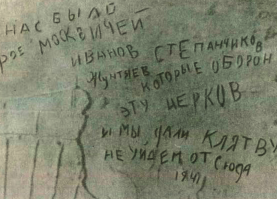 НАС БЫЛО
РОЕ МОСКВИЧЕЙ
ИВАНОВ СТЕПАНЧИКОВ
ЖУНТЯЕВ КОТОРЫЕ ОБОРОН
ЭТУ ЦЕРКОВ
И МЫ ДАЛИ КЛЯТВУ
НЕ УЙДЕМ ОТ СЮДА
1941